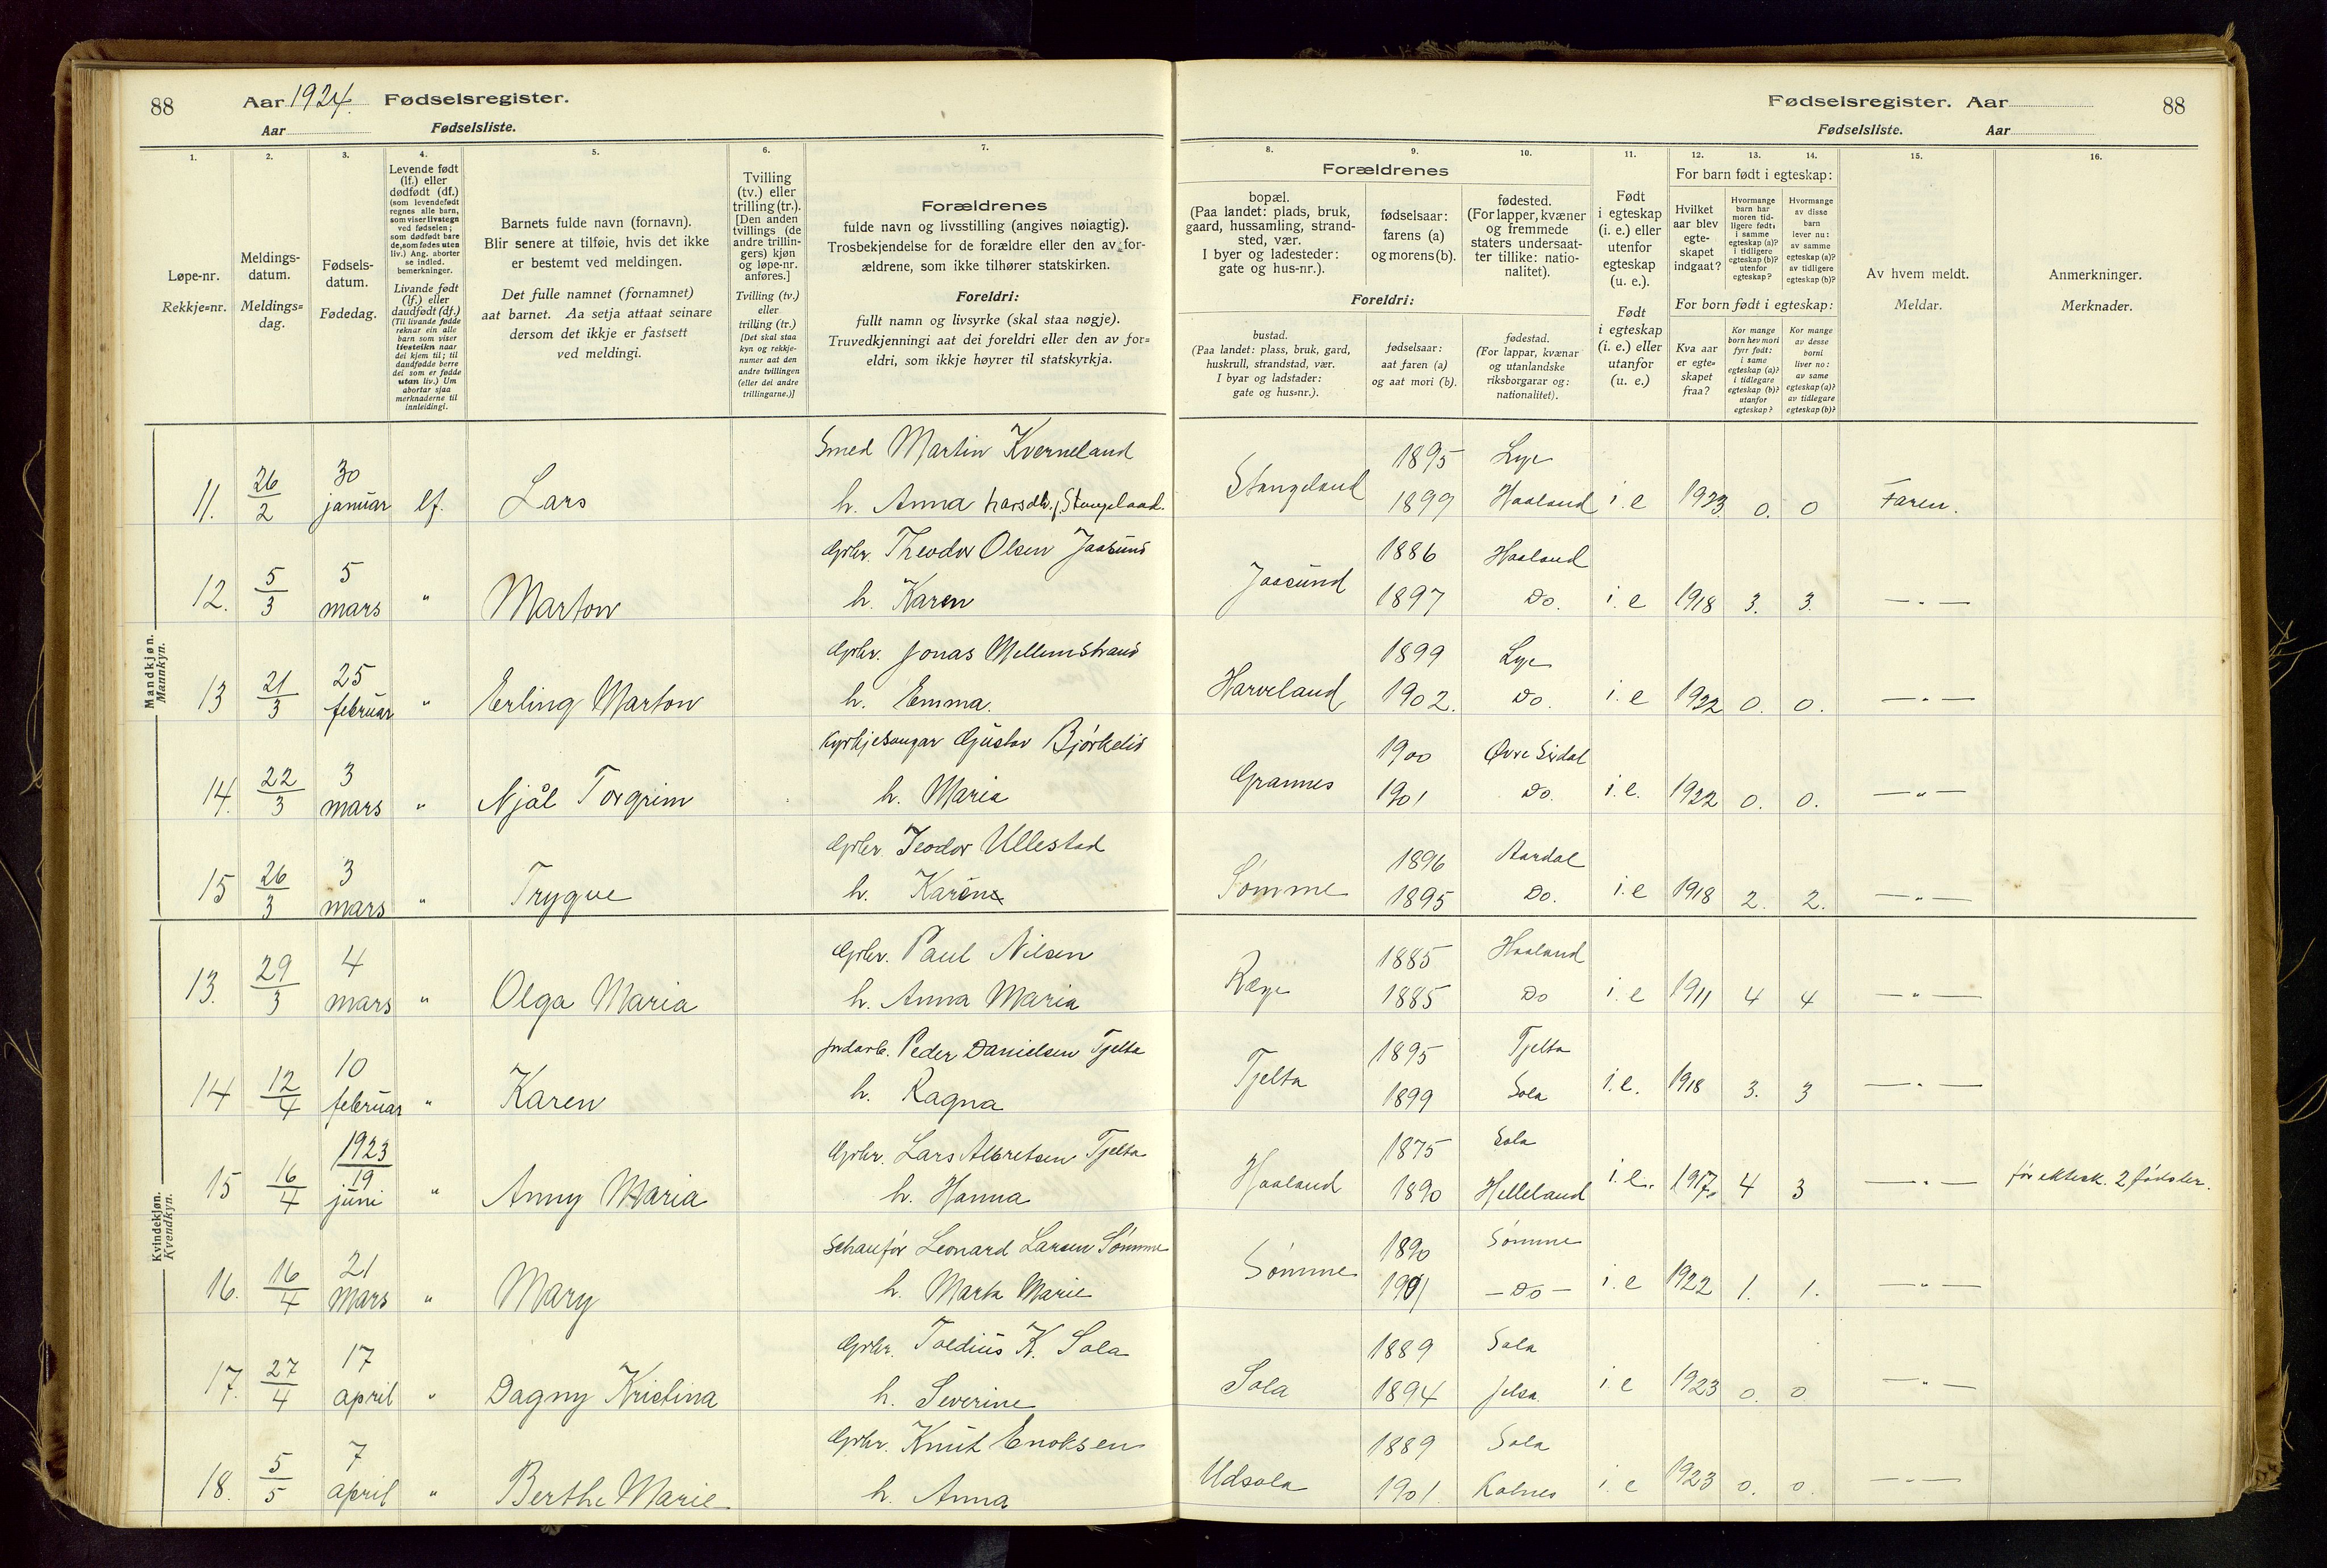 88 Aar 1924. Fødselsregister.
Aar Fødselsliste.
Fødselsregister. Aar 88
Fødselsliste. Aar
1. 2. 3. 4. 5. 6. 7.
Løpe-nr.
Rekkje=nr.
Meldings-
datum.
Meldings=
dag.
Fødsels-
datum.
Fødedag.
Levende født
(lf.) eller
dødfødt (df.)
(som levendefødt
regnes alle barn,
som viser livstegn
ved fødselen;
som dødfødt bare
de, som fødes uten
liv.) Ang. aborter
se indled.
bemerkninger.
Livande født
(lf.) eller
daudfødt (df.)
(Til livande fødde
reknar ein alle
barn som viser
livsteikn naar
dei kjem til; til
daudfødde berre
dei som er fødde
utan liv.) Um
abortar sjaa
merknaderne til
innleidingi.
Barnets fulde navn (fornavn).
Blir senere at tilføie, hvis det ikke
er bestemt ved meldingen.
Det fulle namnet (fornamnet)
aat barnet. Aa setja attaat seinare
dersom det ikkje er fastsett
ved meldingi.
Tvilling
(tv.) eller
trilling (tr.).
[Den anden
tvillings (de
andre trillin-
gers) kjøn
og løpe-nr.
anføres.]
Tvilling (tv.)
eller
trilling (tr.)
[Det skal staa
kyn og rekkje-
numer aat den
andre tvillingen
(eller dei andre
trillingarne.)]
Forældrenes
fulde navn og livsstilling (angives nøiagtig).
Trosbekjendelse for de forældre eller den av for-
ældrene, som ikke tilhører statskirken.
Foreldri:
fullt namn og livsyrke (skal staa nøgje).
Truvedkjenningi aat dei foreldri eller den av for=
eldri, som ikkje høyrer til statskyrkja.
8. 9. 10. 11. 12. 13. 14. 15. 16.
Forældrenes
bopæl.
(Paa landet: plads, bruk,
gaard, hussamling, strand-
sted, vær.
I byer og ladesteder:
gate og hus-nr.).
fødselsaar:
farens (a)
og morens (b).
fødested.
(For lapper, kvæner
og fremmede
staters undersaat-
ter tillike: natio-
nalitet).
Foreldri:
bustad.
(Paa landet: plass, bruk, gard,
huskrull, strandstad, vær.
I byar og ladstader:
gate og hus=nr.).
fødselsaar:
aat faren (a)
og aat mori (b).
fødestad.
(For lappar, kvænar
og utanlandske
riksborgarar og:
nationalitet).
Født
i egteskap
(i. e.) eller
utenfor
egteskap
(u. e.).
Født
i egteskap
(i. e.) eller
utanfor
(u. e.)
For barn født i egteskap:
Hvilket
aar blev
egte-
skapet
indgaat?
Hvormange
barn har
moren tid-
ligere født:
i samme
egteskap (a)?
i tidligere
egteskap (b)?
utenfor
egteskap?
Hvormange
av disse
barn
lever nu:
av samme
egteskap (a)?
av tidligere
egteskap (b)?
For born født i egteskap:
Kva aar
er egte=
skapet
fraa?
Kor mange
born hev mori
fyrr født:
i same
egteskap (a)?
i tidlegare
egteskap (b)?
utanfor
egteskap?
Kor mange
av desse
borni
liver no:
av same
egteskap (a)?
av tidlegare
egteskap (b)?
Av hvem meldt.
Meldar.
Anmerkninger.
Merknader.
Mandkjøn.
Mannkyn.
Smed Martin Kverneland 1895 Lye
11. 26/2 30 januar lf. Lars h. Anna Larsdtr. f. Stangeland. Stangeland 1899 Haaland i. e 1923. 0. 0 Faren.
Grbr. Theodor Olsen Jaasund 1886 Haaland
12. 5/3 5 mars " Marton h. Karen Jaasund 1897 Do. i. e 1918 3. 3. — " —
Grbr. Jonas Mellemstrand 1899 Lye
13 21/3 25 februar " Erling Marton h. Emma. Harveland 1902. Do. i. e 1922 0. 0. — " —
Kyrkjesongar Gustav Bjørkelid 1900 Øvre Sirdal
14. 22/3 3 mars " Njål Torgrim h. Maria Grannes 1901 Do. i. e. 1922 0. 0. — " —
Grbr. Teodor Ullestad 1896 Aardal
15 26/3 3 mars " Trygve h. Karen Sømme 1895 Do. i. e 1918 2. 2. — " —
Kvindekjøn.
Kvendkyn.
Grbr. Paul Nilsen 1885 Haaland
13. 29/3 4 mars " Olga Maria h. Anna Maria Ræge 1885 Do i. e 1911 4 4 — " —
Jrdarb. Peder Danielsen Tjelta 1895 Tjelta
14 12/4 10 februar " Karen h. Ragna Tjelta 1899 Sola i. e. 1918 3. 3 — " —
1923 Grbr. Lars Albretsen Tjelta 1875 Sola
15 16/4 19 juni " Anny Maria h. Hanna Haaland 1890 Helleland i. e. 1917. 4 3 — " — før ektesk. 2 fødsler.
Schaufør Leonard Larsen Sømme 1890 Sømme
16. 16/4 21 Mars " Mary h. Marta Marie Sømme 1901 — Do — i. e 1922 1. 1. — " —
Grbr. Toldius K. Sola 1889 Sola
17. 27/4 17 april " Dagny Kristina h. Severine Sola 1894 Jelsa. i. e 1923 0. 0 — " —
Grbr. Knut Enoksen 1889 Sola
18. 5/5 7 april " Berthe Marie h. Anna Udsola 1901. Kolnes i. e 1923 0. 0. — " —